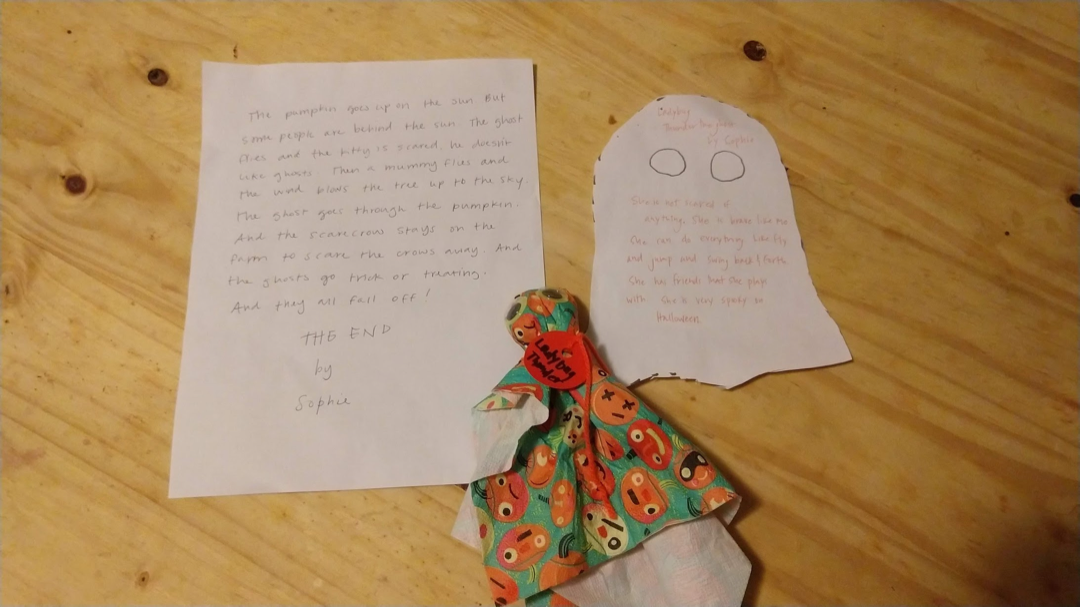 The pumpkin goes up on the sun But
some people are behind the sun. The ghost
flies and the kitty is scared. he doesn't
like ghosts. Then a mummy flies and
the wind blows the tree up to the sky.
The ghost goes through the pumpkin.
And the scarecrow stays on the
farm to scare the crows away. And
the ghosts go trick or treating.
And they all fall off!
THE END
by
Sophie
Thunder the ghost
by Sophie
She is not scared of
anything. She is brave like me
She can do everything like fly
and jump and swing back & forth
She has friends that she plays
with. She is very spooky on
Halloween.
LadyBug